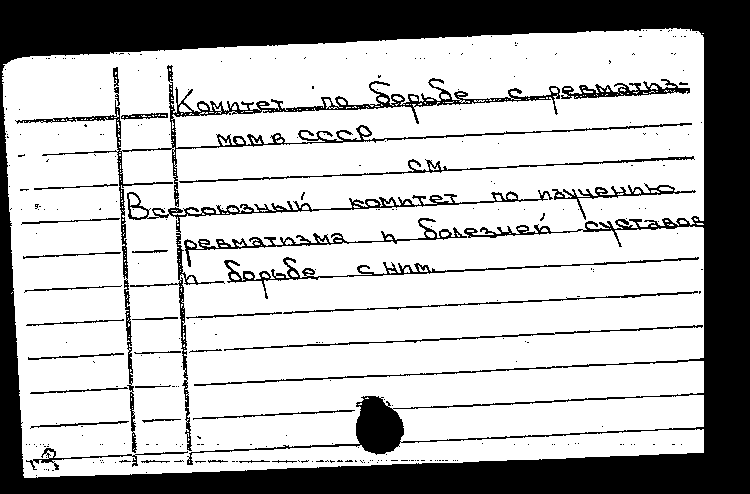 Комитет по борьбе с ревматиз-
мом в СССР.
см.
Всесоюзный комитет по изучению
ревматизма и болезней суставов
и борьбе с ним.